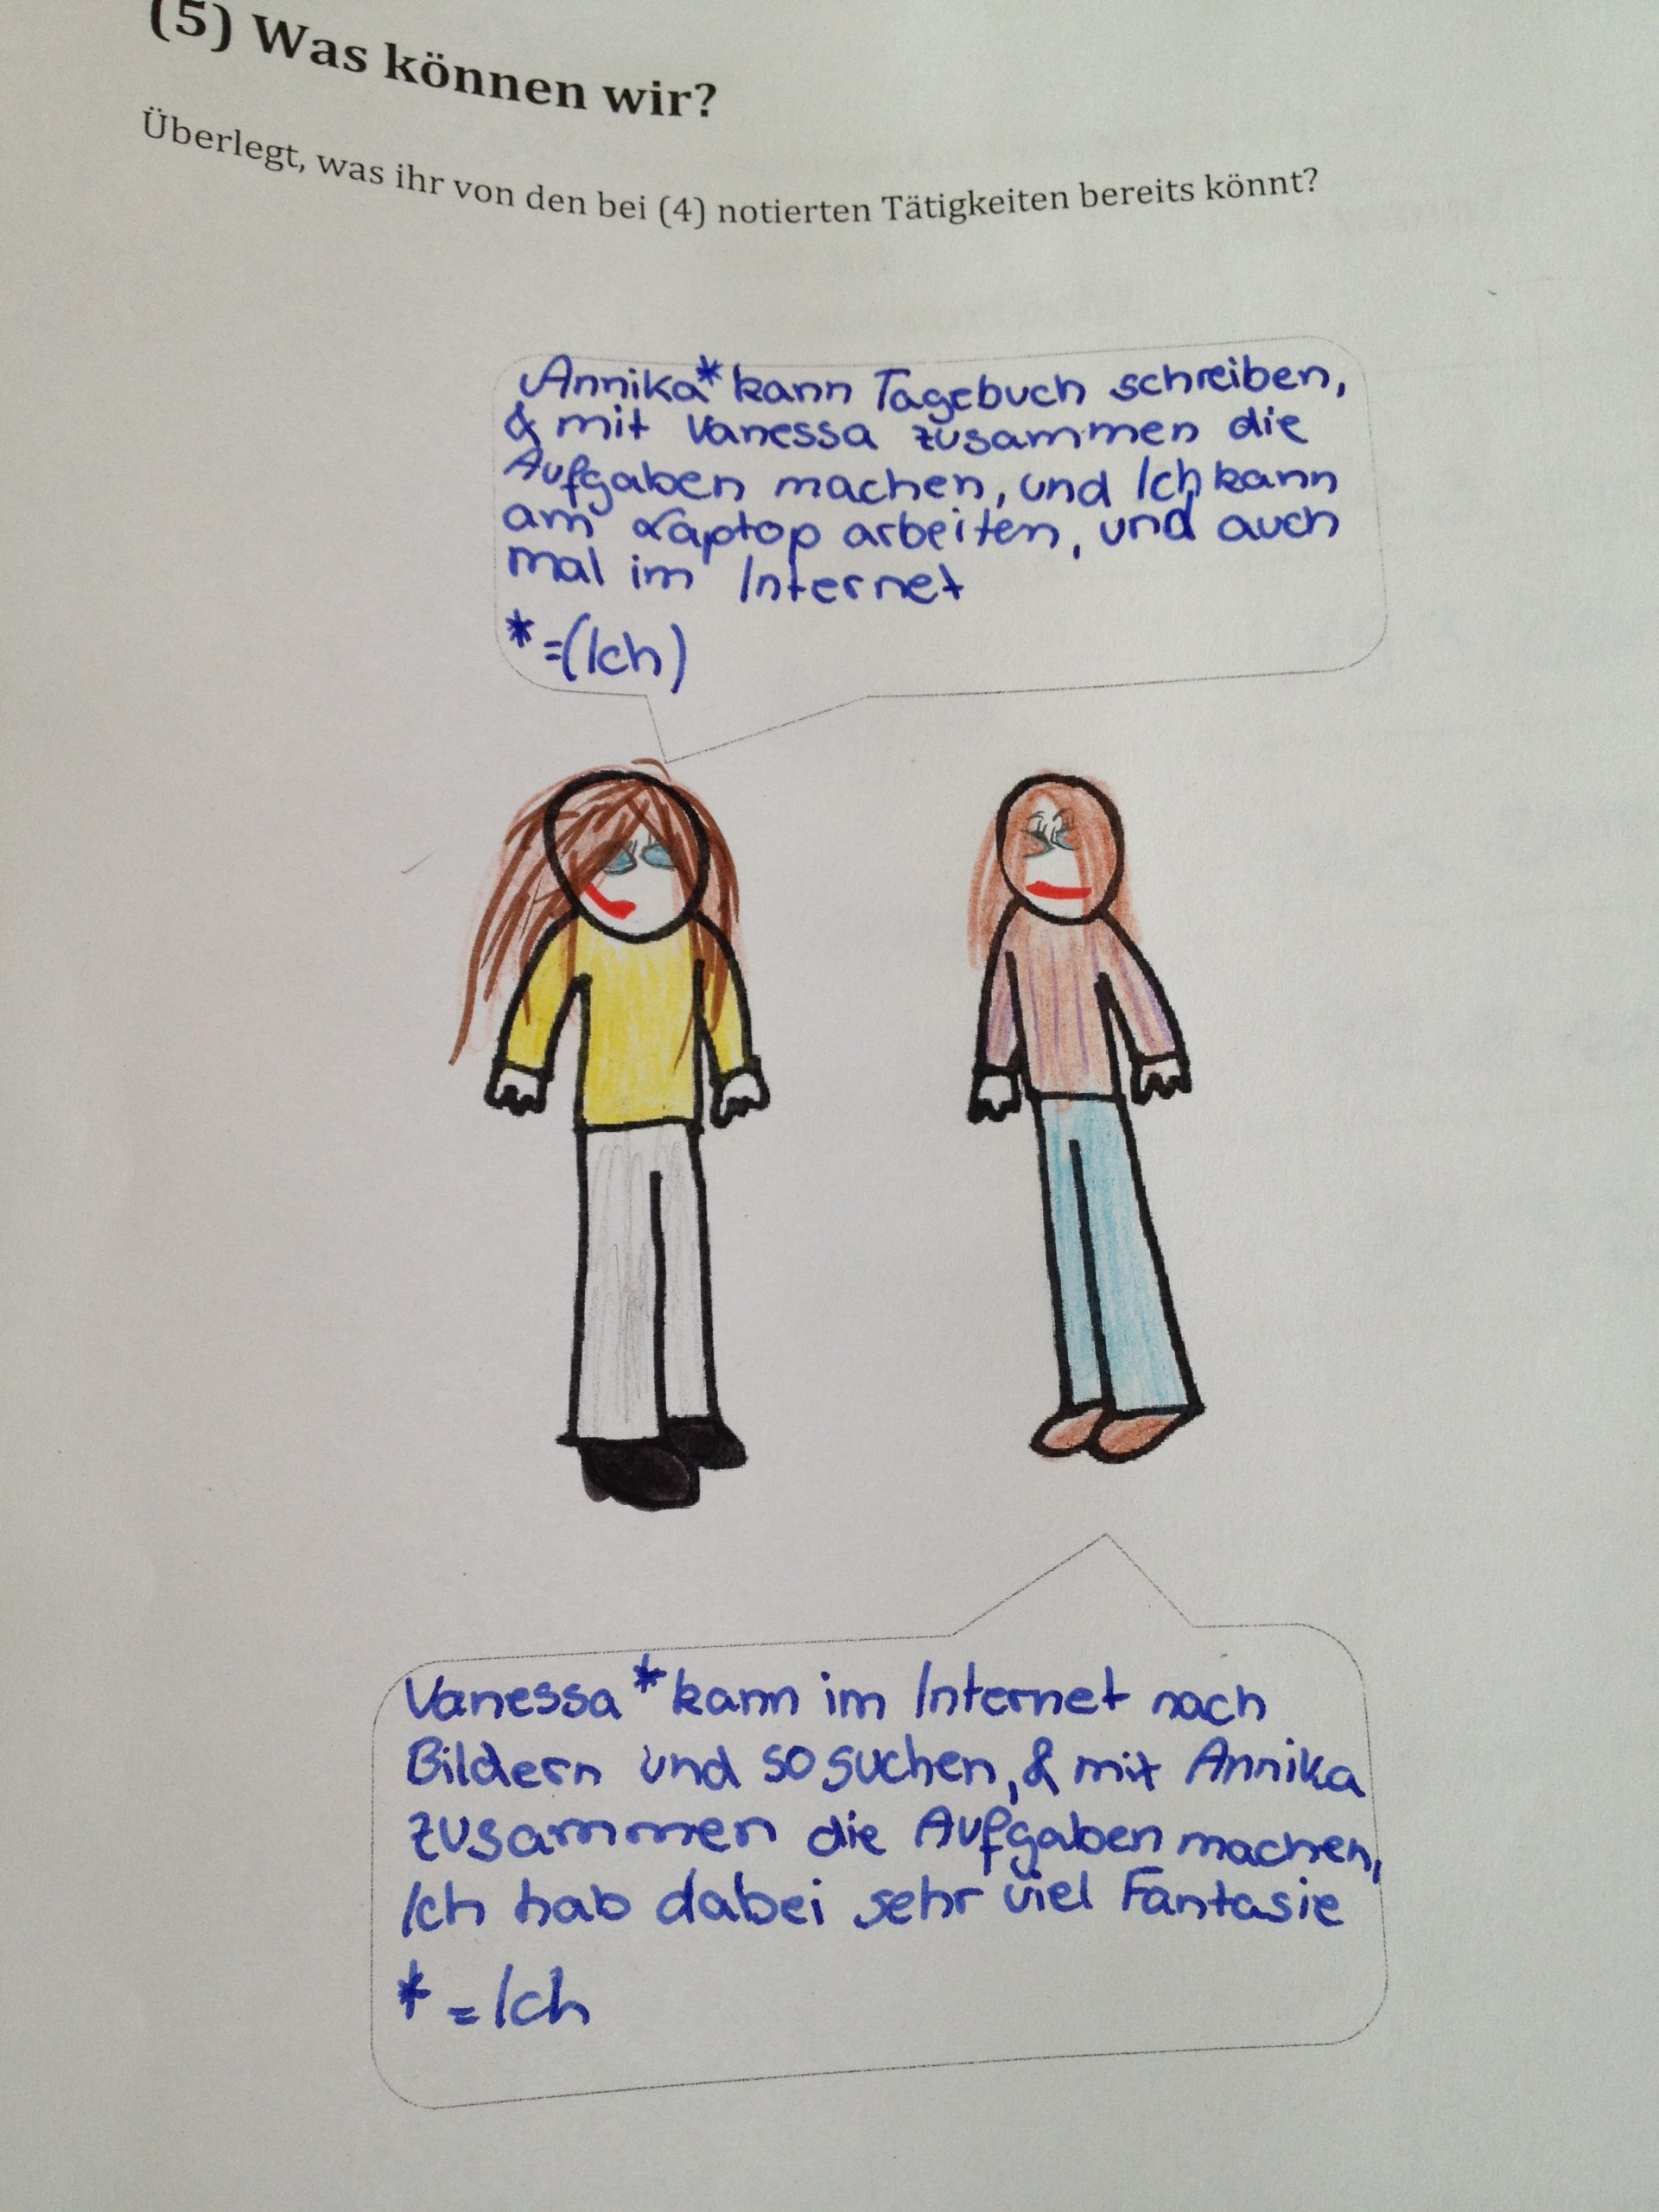 (5) Was können wir?
Überlegt, was ihr von den bei (4) notierten Tätigkeiten bereits könnt?
Annika* kann Tagebuch schreiben,
& mit Vanessa zusammen die
Aufgaben machen, und Ich kann
am Laptop arbeiten, und auch
mal im Internet
*=(Ich)
Vanessa* kann im Internet nach
Bildern und so suchen, & mit Annika
zusammen die Aufgaben machen,
Ich hab dabei sehr viel Fantasie
*=Ich